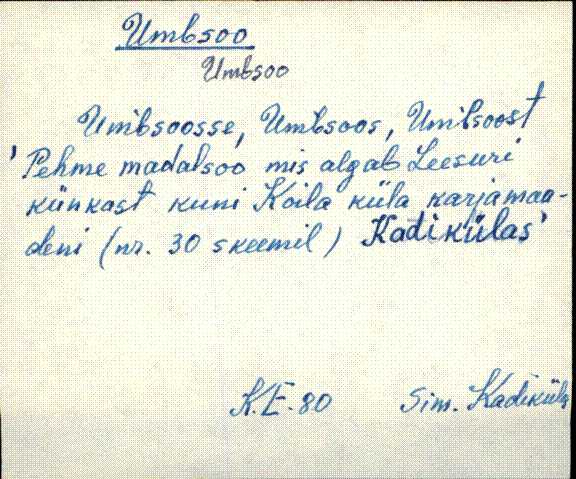 Umbsoo
Umbsoo
Umbsoosse, Umbsoos, Umbsoost
'Pehme madalsoo mis algab Leesuri
künkast kuni Koila küla karjamaa-
deni (nr. 30 skeemil) Kadikülas'
K.E. 80 Sim. Kadiküla